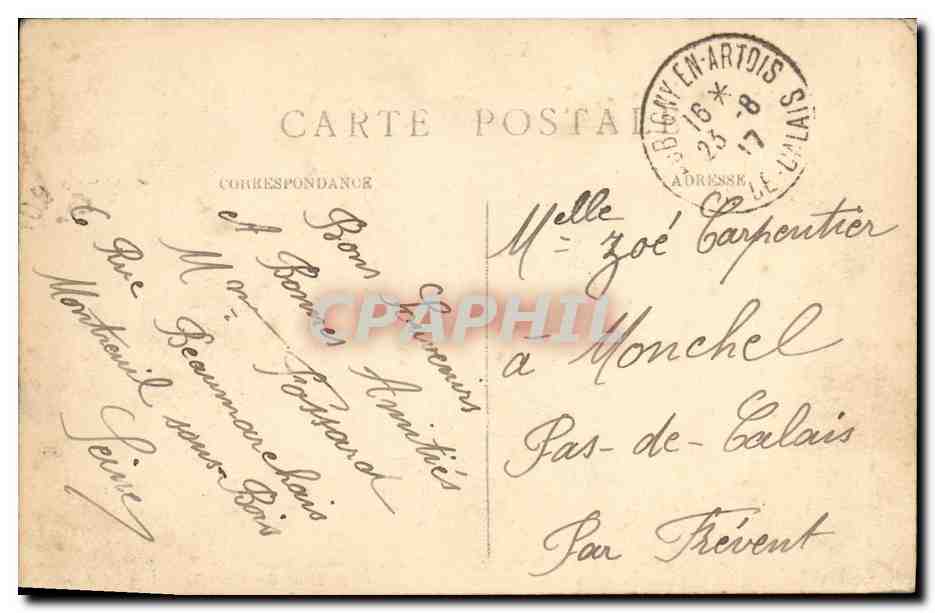 CARTE POSTALE
CORRESPONDANCE
ADRESSE
AUBIGNY-EN-ARTOIS
16 *
23 -8
17
PAS-DE-CALAIS
Bons Souvenirs
et Bonnes Amitiés
Mme Fossard
6 Rue Beaumarchais
Montreuil sous-Bois
Seine
Melle Zoé Carpentier
à Monchel
Pas-de-Calais
Par Frévent
CPAPHIL